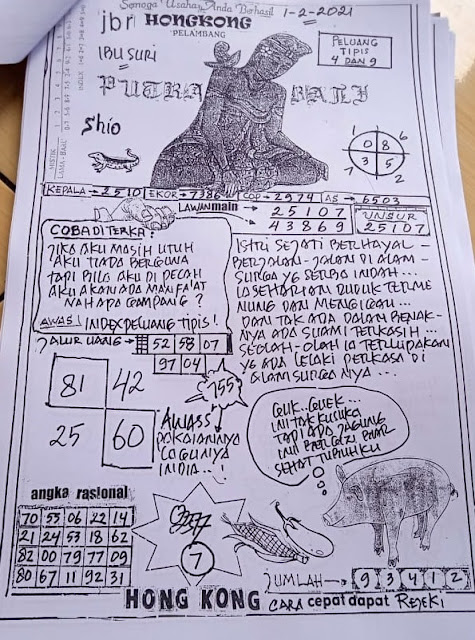 Semoga Usaha Anda Berhasil
1-2-2021
jbr HONGKONG
PELAMBANG
IBU SURI
PELUANG
TIPIS
4 DAN 9
PUTRA BALI
Shio
1 6
0 8
3 5
7 2
KEPALA → 2510 EKOR → 7386 COP → 2974 AS → 6503
LAWAN main
25107
43869
UNSUR
25107
COBA DI TERKA:
JIKA AKU MASIH UTUH
AKU TIADA BERGUNA
TAPI BILA AKU DI PECAH
AKU AKAN ADA MANFA'AT
NAH APA GAMPANG?
AWAS! INDEX PELUANG TIPIS!
ISTRI SEJATI BERHAYAL-
BERJALAN-JALAN DI ALAM-
SURGA YG SERBA INDAH...
IA SEHARIAN DUDUK TERME
NUNG DAN MENGIGAU...
DAN TAK ADA DALAM BENAK-
NYA ADA SUAMI TERKASIH...
SEOLAH-OLAH IA TERLUPAKAN
YG ADA LELAKI PERKASA DI
ALAM SURGA NYA...
JALUR UANG →
52 58 07
97 04
81 42
25 60
755
AWASS
PAKAIANNYA
LAGUNYA
INDIA...!
CUIK..CUEK...
INI TAK KUSUKA
TAPI ADA JAGUNG
INI BERGIZI BIAR
SEHAT TUBUHKU
angka rasional
70 55 06 22 14
21 24 53 18 62
82 00 79 77 09
80 67 11 92 31
7
JUMLAH → 9 3 4 1 2
HONG KONG CARA cepat dapat REJEKI